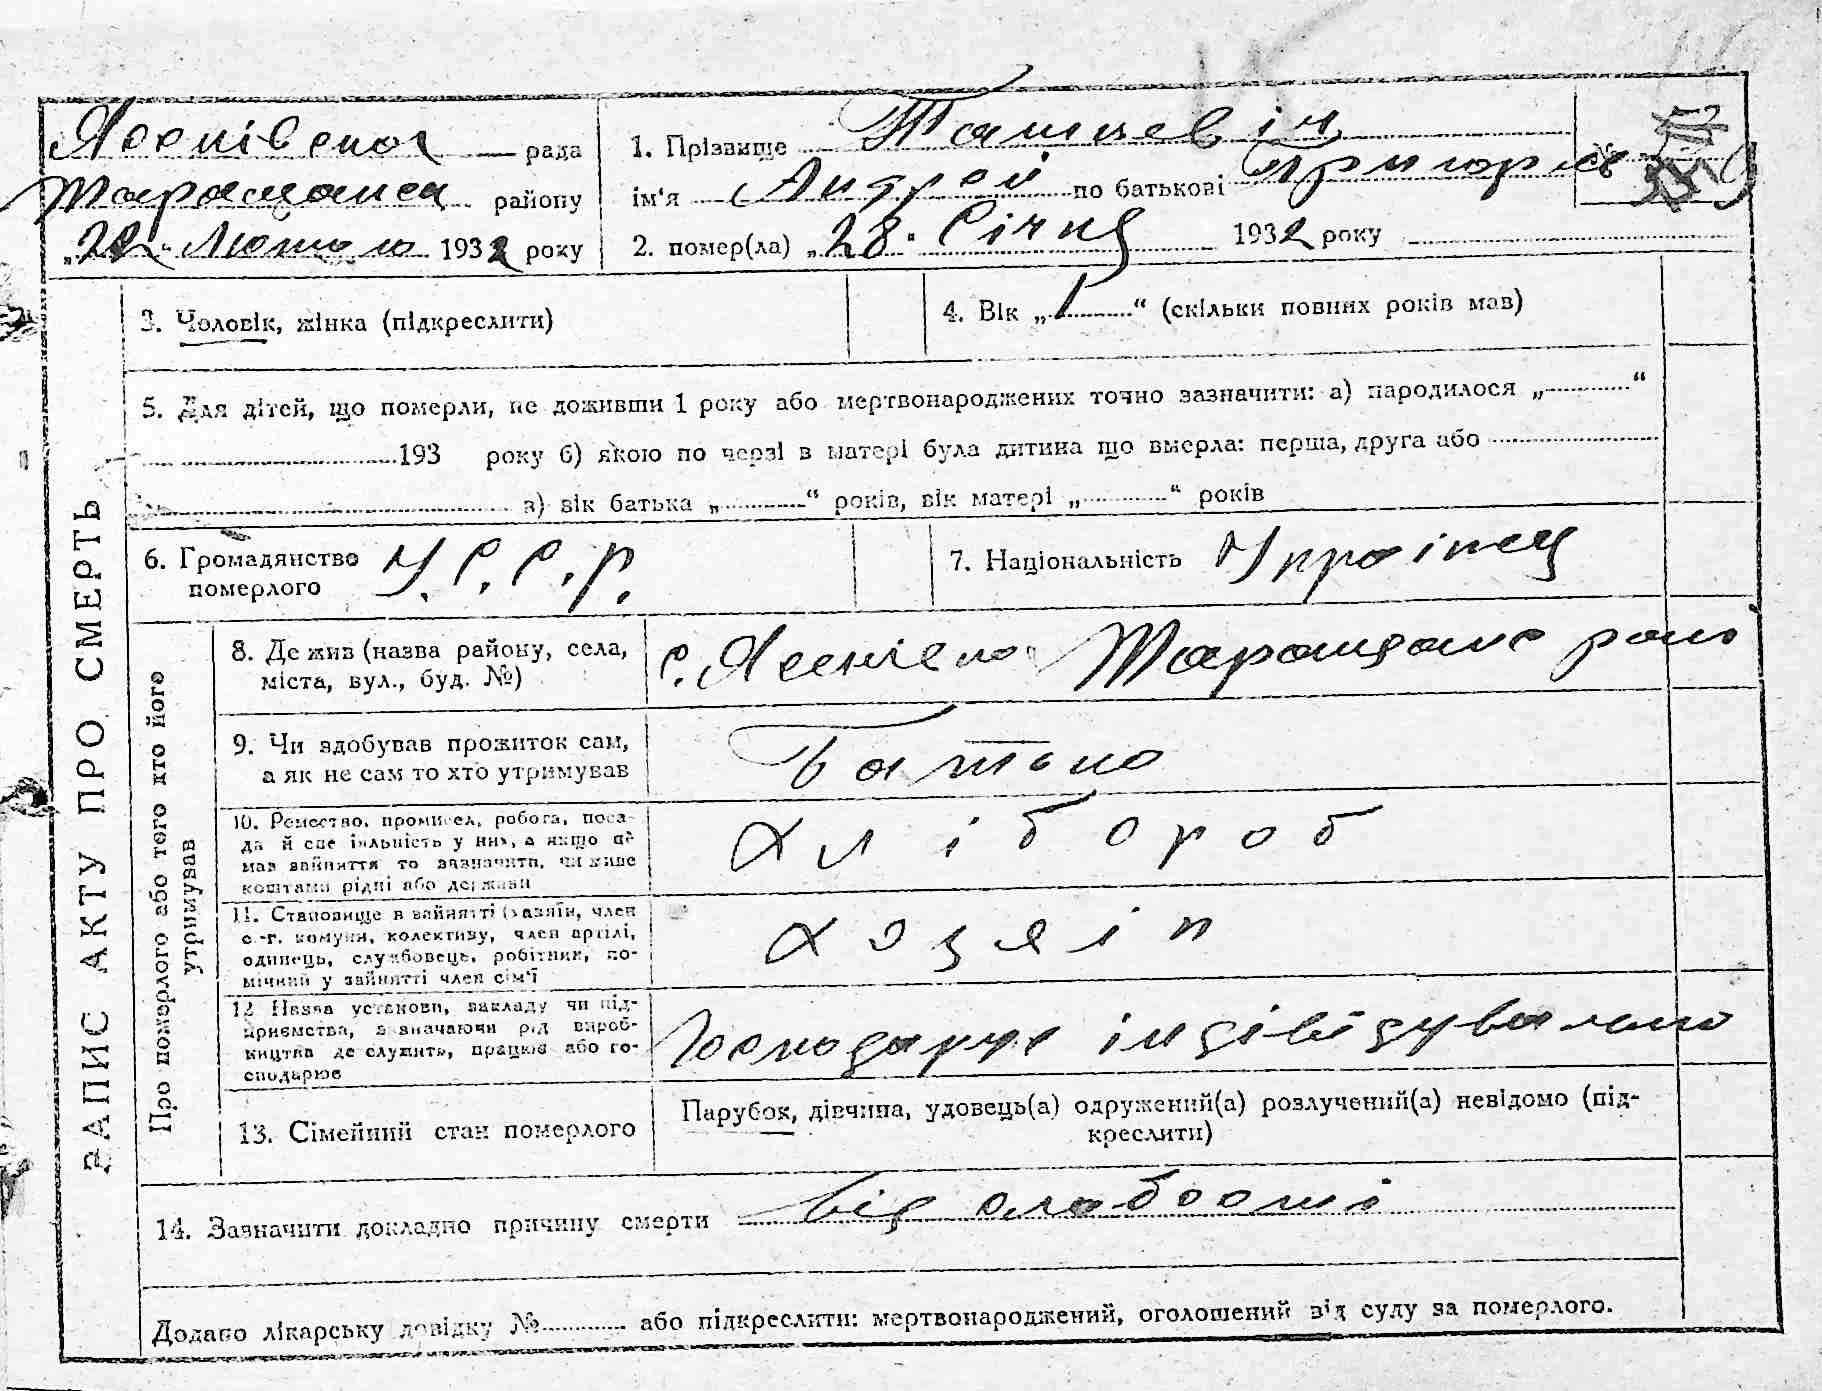 ЗАПИС АКТУ ПРО СМЕРТЬ
Ясенівска рада
Таращанск району
„22" Лютого 1932 року
1. Прізвище Ташкевіч
ім'я Андрій по батькові Григоров
2. помер(ла) „28" Січня 1932 року
3. Чоловік, жінка (підкреслити)
4. Вік „1“ (скільки повних років мав)
5. Для дітей, що померли, не доживши 1 року або мертвонароджених точно зазначити: а) народилося „ “
193 року б) якою по черзі в матері була дитина що вмерла: перша, друга або
в) вік батька „ “ років, вік матері „ “ років
6. Громадянство померлого У.С.С.Р.
7. Національність Українец
Про померлого або того хто його утримував
8. Де жив (назва району, села,
міста, вул., буд. №)
с. Ясенівка Таращанс рай
9. Чи здобував прожиток сам,
а як не сам то хто утримував
Батько
10. Ремество, промисел, робота, поса-
да й спеціяльність у них, а якщо не
мав зайняття то зазначити, чи живе
коштами рідні або держави
Хлібороб
11. Становище в зайнятті (хазяїн, член
с.-г. комуни, колективу, член артілі,
одинець, службовець, робітник, по-
мічний у зайнятті член сім'ї
Хозяін
12. Назва установи, закладу чи під-
приємства, зазначаючи рід вироб-
ництва де служить, працює або го-
сподарює
Господарує індівідувально
13. Сімейний стан померлого
Парубок, дівчина, удовець(а) одружений(а) розлучений(а) невідомо (під-
креслити)
14. Зазначити докладно причину смерти від слабости
Додано лікарську довідку № або підкреслити: мертвонароджений, оголошений від суду за померлого.